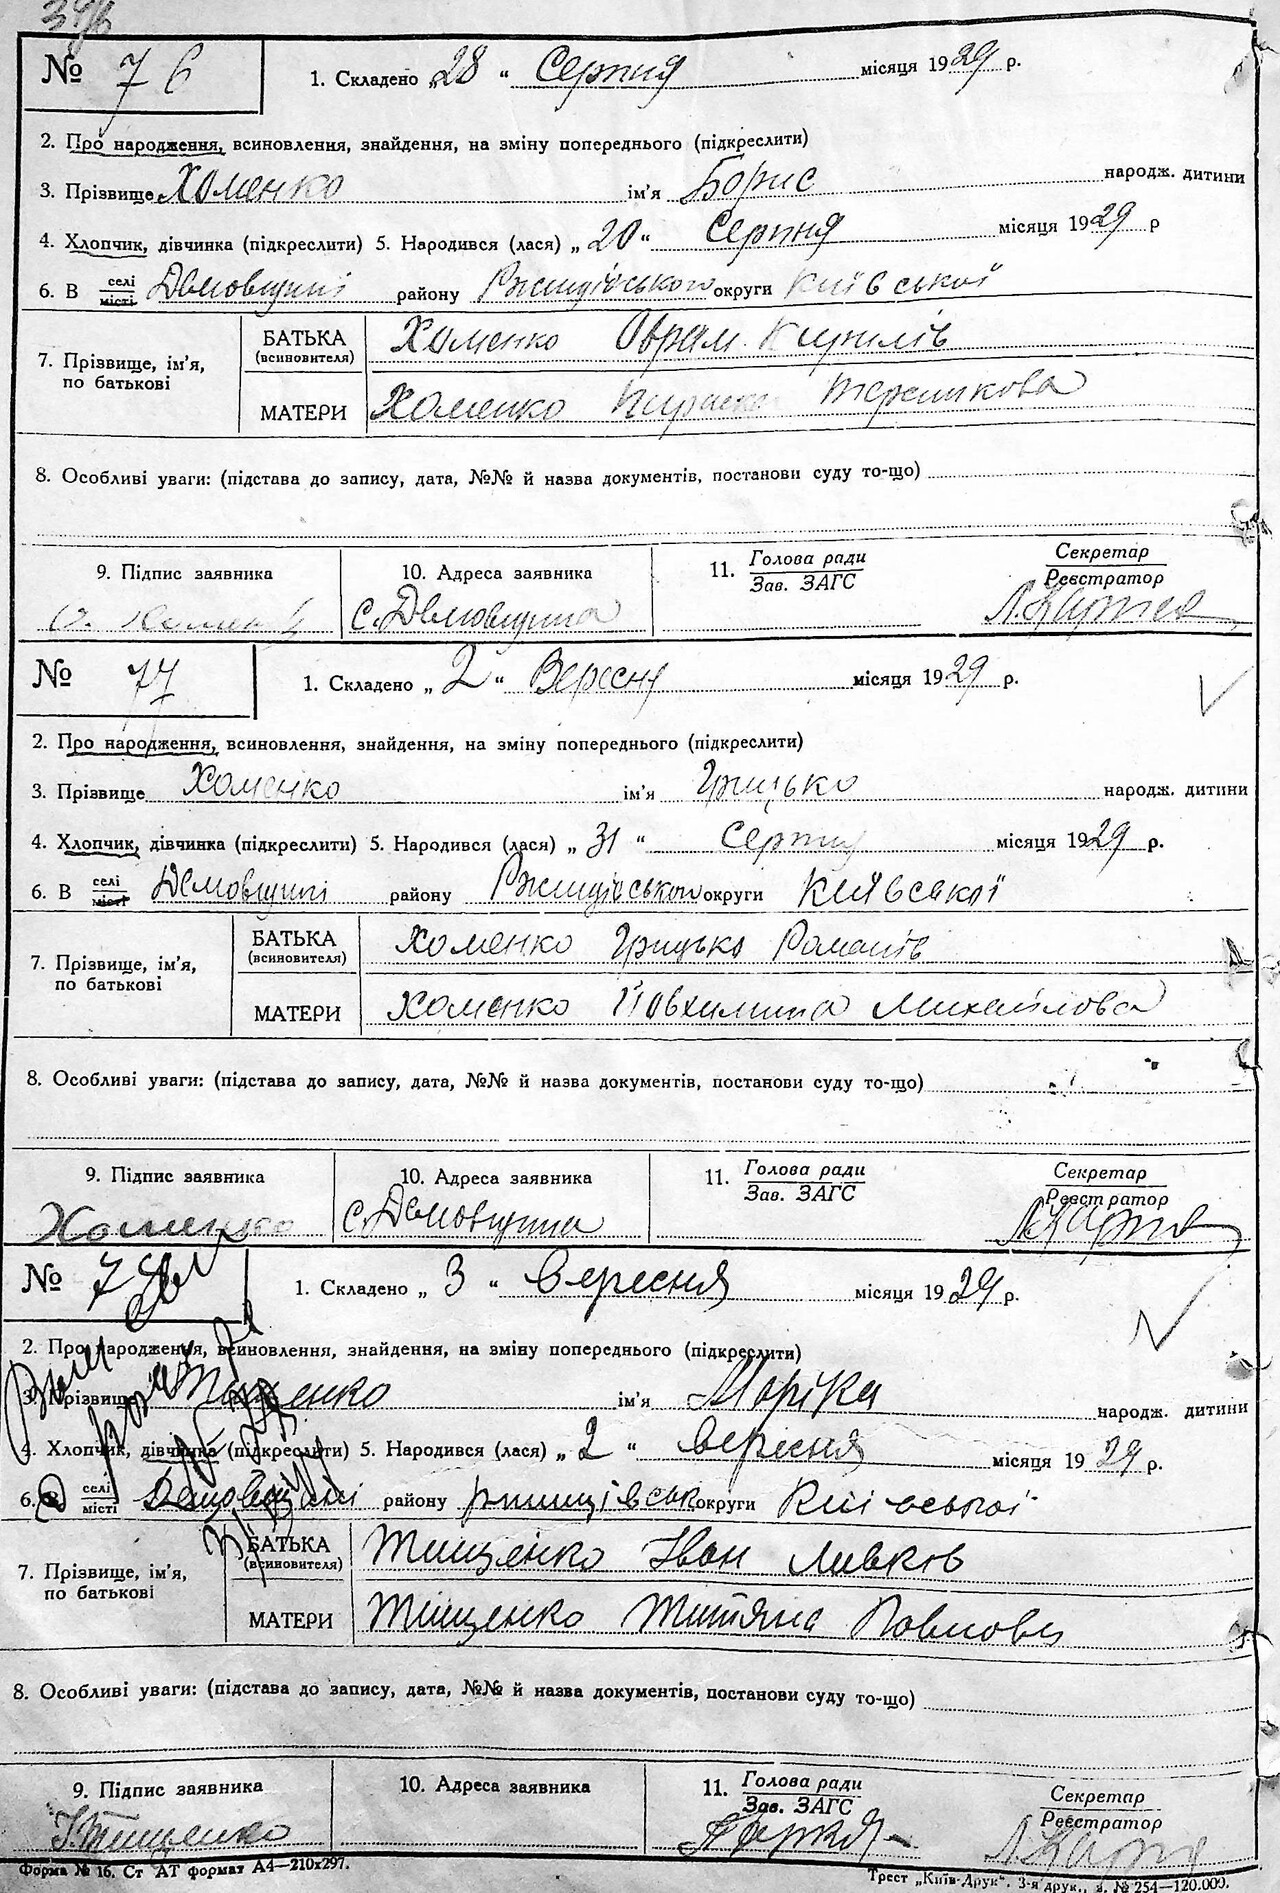 № 76 1. Складено „28 “ Серпня місяця 1929 р.
2. Про народження, всиновлення, знайдення, на зміну попереднього (підкреслити)
3. Прізвище Хоменко ім'я Борис народж. дитини
4. Хлопчик, дівчинка (підкреслити) 5. Народився (лася) „ 20 “ Серпня місяця 1929 р
6. В селі місті Демовщині району Ржищівського округи Київської
7. Прізвище, ім'я, по батькові
БАТЬКА (всиновителя) Хоменко Оврам Кирилів
МАТЕРИ Хоменко Терешкова
8. Особливі уваги: (підстава до запису, дата, №№ й назва документів, постанови суду то-що)
9. Підпис заявника 10. Адреса заявника 11. Голова ради Зав. ЗАГС Секретар Реєстратор
О. Хоменко с. Демовщина
№ 77 1. Складено „ 2 “ Вересня місяця 1929 р.
2. Про народження, всиновлення, знайдення, на зміну попереднього (підкреслити)
3. Прізвище Хоменко ім'я Грицько народж. дитини
4. Хлопчик, дівчинка (підкреслити) 5. Народився (лася) „ 31 “ Серпня місяця 1929 р.
6. В селі місті Демовщині району Ржищівського округи Київської
7. Прізвище, ім'я, по батькові
БАТЬКА (всиновителя) Хоменко Грицько Романів
МАТЕРИ Хоменко Йовхимина Михайлова
8. Особливі уваги: (підстава до запису, дата, №№ й назва документів, постанови суду то-що)
9. Підпис заявника 10. Адреса заявника 11. Голова ради Зав. ЗАГС Секретар Реєстратор
Хоменко с. Демовщина
№ 78 1. Складено „ 3 “ вересня місяця 1929 р.
2. Про народження, всиновлення, знайдення, на зміну попереднього (підкреслити)
3. Прізвище Тищенко ім'я Марійка народж. дитини
4. Хлопчик, дівчинка (підкреслити) 5. Народився (лася) „ 2 “ вересня місяця 1929 р.
6. В селі місті Демовщині району ржищівськ округи Київської
7. Прізвище, ім'я, по батькові
БАТЬКА (всиновителя) Тищенко Іван Ливків
МАТЕРИ Тищенко Титяна Павлова
8. Особливі уваги: (підстава до запису, дата, №№ й назва документів, постанови суду то-що)
9. Підпис заявника 10. Адреса заявника 11. Голова ради Зав. ЗАГС Секретар Реєстратор
І. Тищенко
Форма № 16. Ст АТ формат А4—210х297. Трест „Київ-Друк“. 3-я друк., з. № 254—120.000.